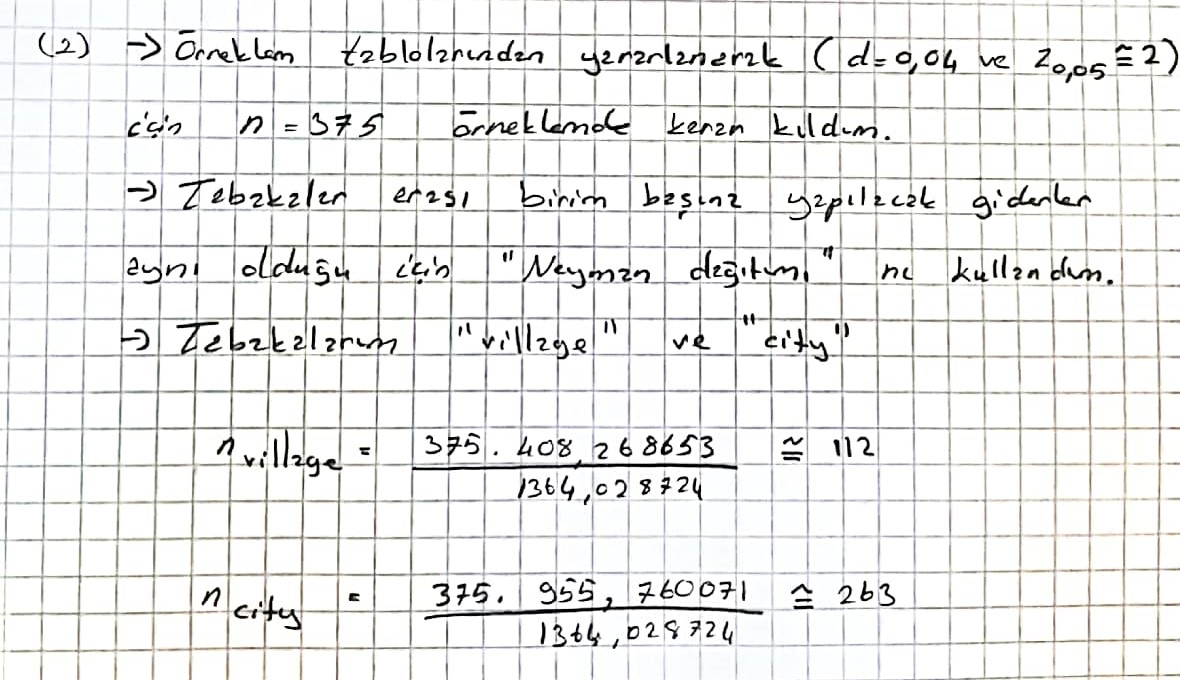 (2) → Örneklem tablolarından yararlanarak ( d=0,04 ve Z0,05 ≅ 2)
için n = 375 örneklemde karar kıldım.
→ Tabakalar arası birim başına yapılacak giderler
aynı olduğu için "Neyman dağıtımı" nı kullandım.
→ Tabakalarım "village" ve "city"
n village = 375. 408,268653 / 1364,028724 ≅ 112
n city = 375. 955,760071 / 1364,028724 ≅ 263